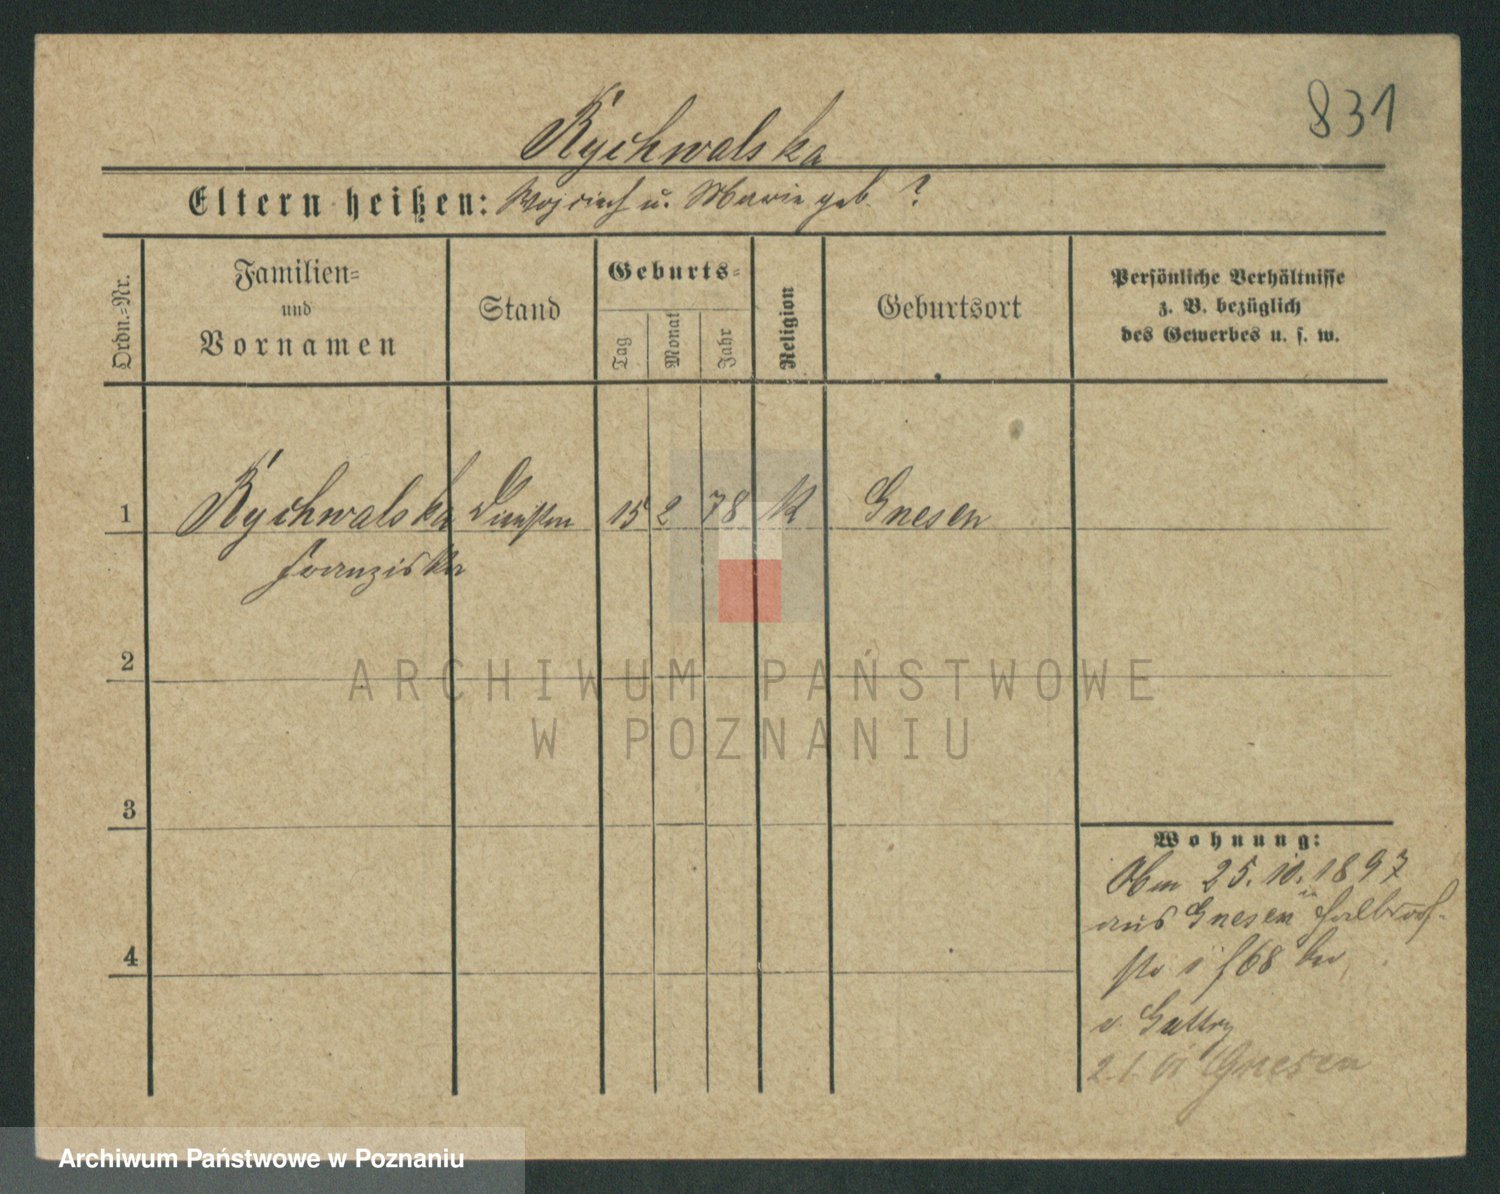 831
Rychwalska
Eltern heißen: Wojciech u. Marie geb. ?
Ordn.-Nr.
Familien-
und
Vornamen
Stand
Geburts-
Tag
Monat
Jahr
Religion
Geburtsort
Persönliche Verhältnisse
z. B. bezüglich
des Gewerbes u. s. w.
1 Rychwalska 15 2 78 K Gnesen
Franziska
2
ARCHIWUM PAŃSTWOWE
W POZNANIU
3
4
Wohnung:
25. 10. 1897
aus Gnesen in
68
v.
Gnesen
Archiwum Państwowe w Poznaniu